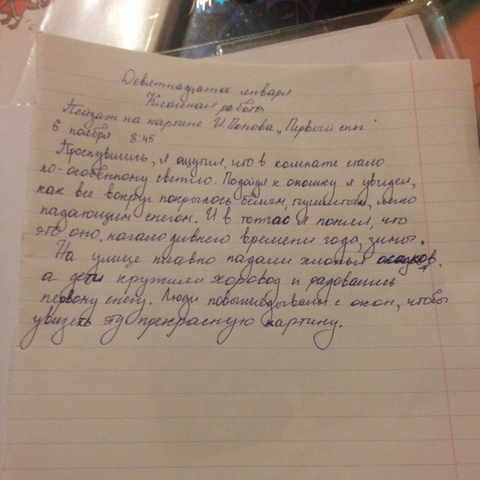 Девятнадцатое января
Классная работа
Пейзаж на картине И. Попова „Первый снег"
6 ноября 8:45
Проснувшись, я ощутил, что в комнате стало
по-особенному светло. Подойдя к окошку я увидел,
как все вокруг покрылось белым, пушистым, плавно
падающим снегом. И в тот час я понял, что
это оно, начало дивного времени года, зимы.
На улице плавно падали хлопья осадков,
а дети кружили хоровод и радовались
первому снегу. Люди повыглядывали с окон, чтобы
увидеть эту прекрасную картину.